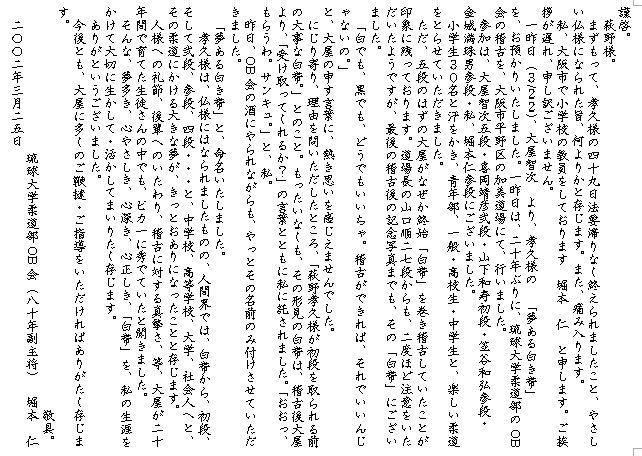 謹啓。
萩野様。
まずもって、孝久様の四十九日法要滞りなく終えられましたこと、やさし
い仏様になられた旨、何よりかと存じます。また、痛み入ります。
私、大阪市で小学校の教員をしております　堀本　仁　と申します。ご挨
拶が遅れ、申し訳ございません。
一昨日（3/22）、大屋智次　より、孝久様の　「夢ある白き帯」
を、お預かりいたしました。一昨日は、二十年ぶりに、琉球大学柔道部のOB
会の稽古を、大阪市平野区の加美道場にて、行いました。
参加は、大屋智次五段・喜岡靖彦弐段・山下和寿初段・笠谷和弘参段・
金城満殊男参段・私、堀本仁参段にございます。
小学生30名と汗をかき、青年部、一般・高校生・中学生と、楽しい柔道
をとらせていただきました。
ただ、五段のはずの大屋がなぜか終始「白帯」を巻き稽古していたことが
印象に残っております。道場長の山口順二七段からも、二度ほど注意をいた
だいたようですが、最後の稽古後の記念写真までも、その「白帯」にござい
ました。
「白でも、黒でも、どうでもいいちゃ。稽古ができれば、それでいいんじ
ゃないの。」
と、大屋の申す言葉に、熱き思いを感じえませんでした。
にじり寄り、理由を問いただしたところ、「萩野孝久様が初段を取られる前
の大事な白帯。」とのこと。もったいなくも、その形見の白帯は、稽古後大屋
より、「受け取ってくれるか？」の言葉とともに私に託されました。「おおっ、
もらうわ。サンキュ。」と、私。
昨日、OB会の酒にやられながらも、やっとその名前のみ付けさせていただ
きました。
「夢ある白き帯」と、命名いたしました。
孝久様は、仏様にはなられましたものの、人間界では、白帯から、初段、
そして弐段、参段、四段・・・と、中学校、高等学校、大学、社会人へと、
その柔道にかける大きな夢が、きっとおありになったことと存じます。
人様への礼節、後輩へのいたわり、稽古に対する真摯さ、等、大屋が二十
年間で育てた生徒さんの中でも、ピカ一に秀でていたと聞きました。
そんな、夢多き、心やさしき、心深き、心正しき、「白帯」を、私の生涯を
かけて大切に生かして・活かしてまいりたく存じます。
ありがとうございました。
今後とも、大屋に多くのご鞭撻・ご指導をいただければありがたく存じま
す。
敬具。
二〇〇二年三月二五日
琉球大学柔道部OB会（八十年副主将）　堀本　仁